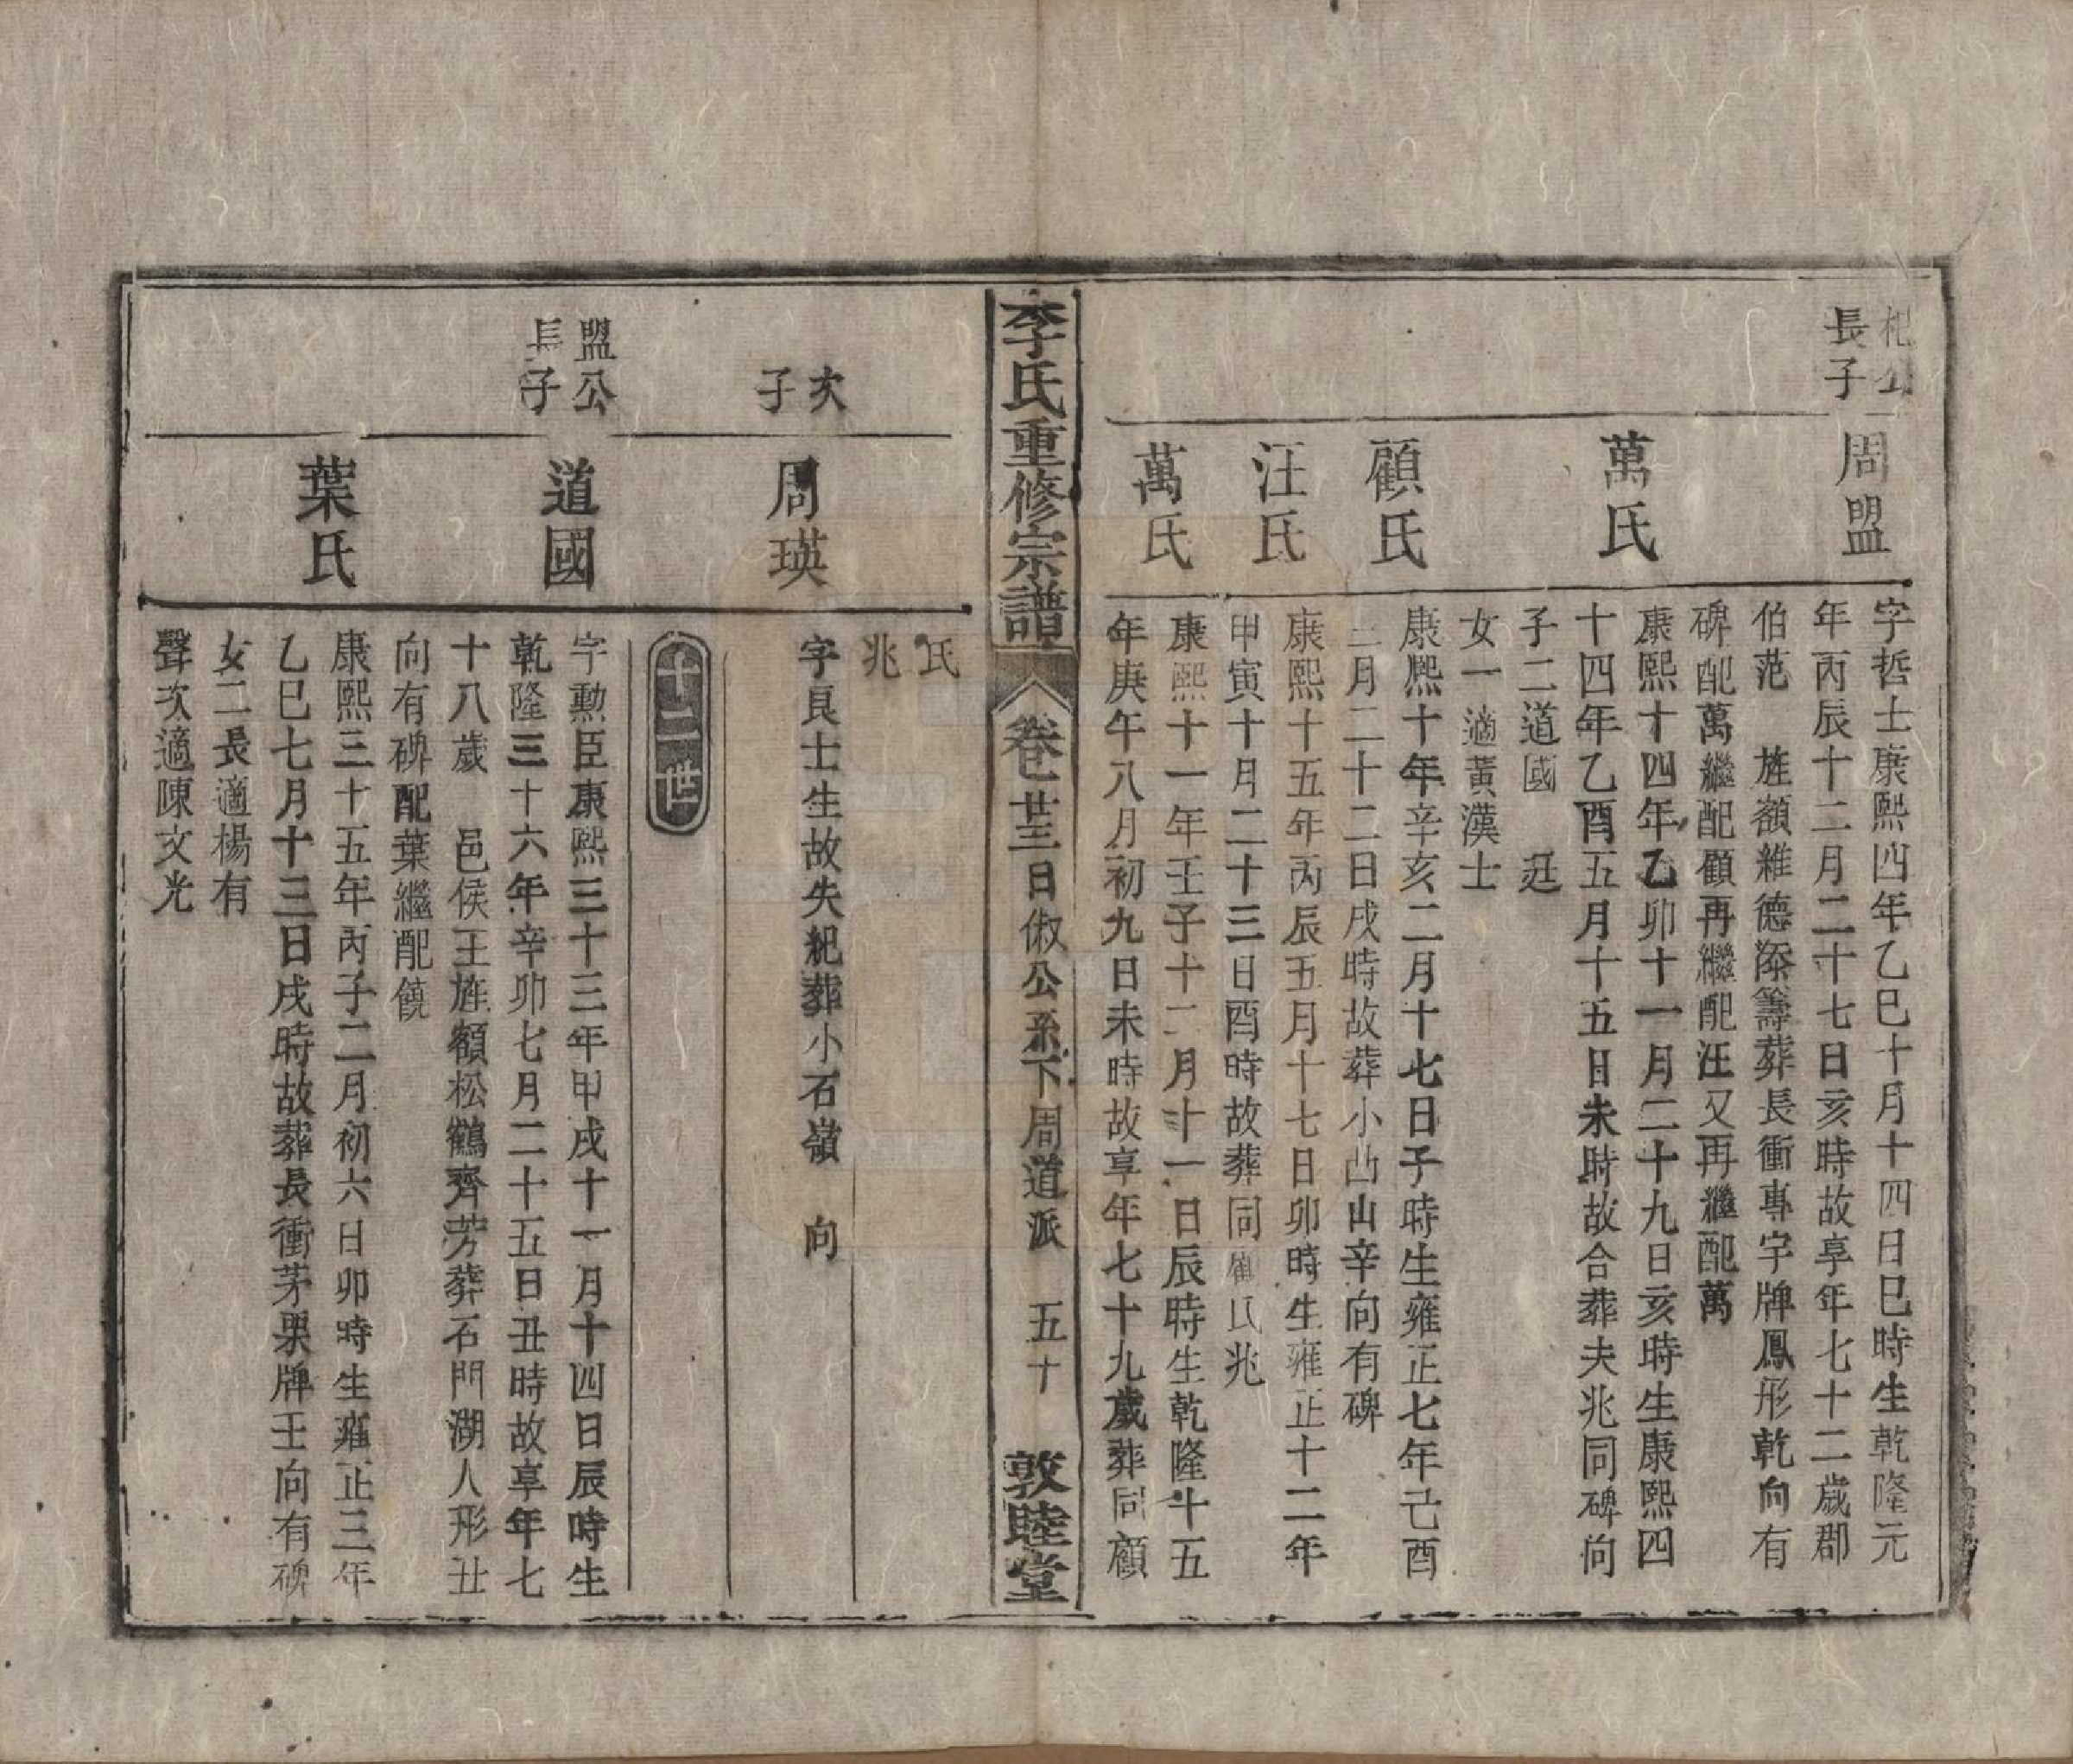 杞公
長子
周盟
字哲士康熙四年乙巳十月十四日巳時生乾隆元
年丙辰十二月二十七日亥時故享年七十二歲郡
伯范　旌額維德添籌葬長衝專字牌鳳形乾向有
碑配萬繼配顧再繼配汪又再繼配萬
萬氏
康熙十四年乙卯十一月二十九日亥時生康熙四
十四年乙酉五月十五日未時故合葬夫兆同碑向
子二道國　廷
女一適黃漢士
顧氏
康熙十年辛亥二月十七日子時生雍正七年己酉
二月二十二日戌時故葬小凸山辛向有碑
汪氏
康熙十五年丙辰五月十七日卯時生雍正十二年
甲寅十月二十三日酉時故葬同顧氏兆
萬氏
康熙十一年壬子十二月十一日辰時生乾隆十五
年庚午八月初九日未時故享年七十九歲葬同顧
李氏重修宗譜　卷廿三日俶公系下周道派　五十　敦睦堂
氏
兆
次
子
周瑛
字良士生故失紀葬小石嶺　向
十二世
盟公
長子
道國
字勳臣康熙三十三年甲戌十一月十四日辰時生
乾隆三十六年辛卯七月二十五日丑時故享年七
十八歲　邑侯王旌額松鶴齊芳葬石門湖人形丑
向有碑配葉繼配饒
葉氏
康熙三十五年丙子二月初六日卯時生雍正三年
乙巳七月十三日戌時故葬長衝茅栗牌壬向有碑
女二長適楊有
聲次適陳文光